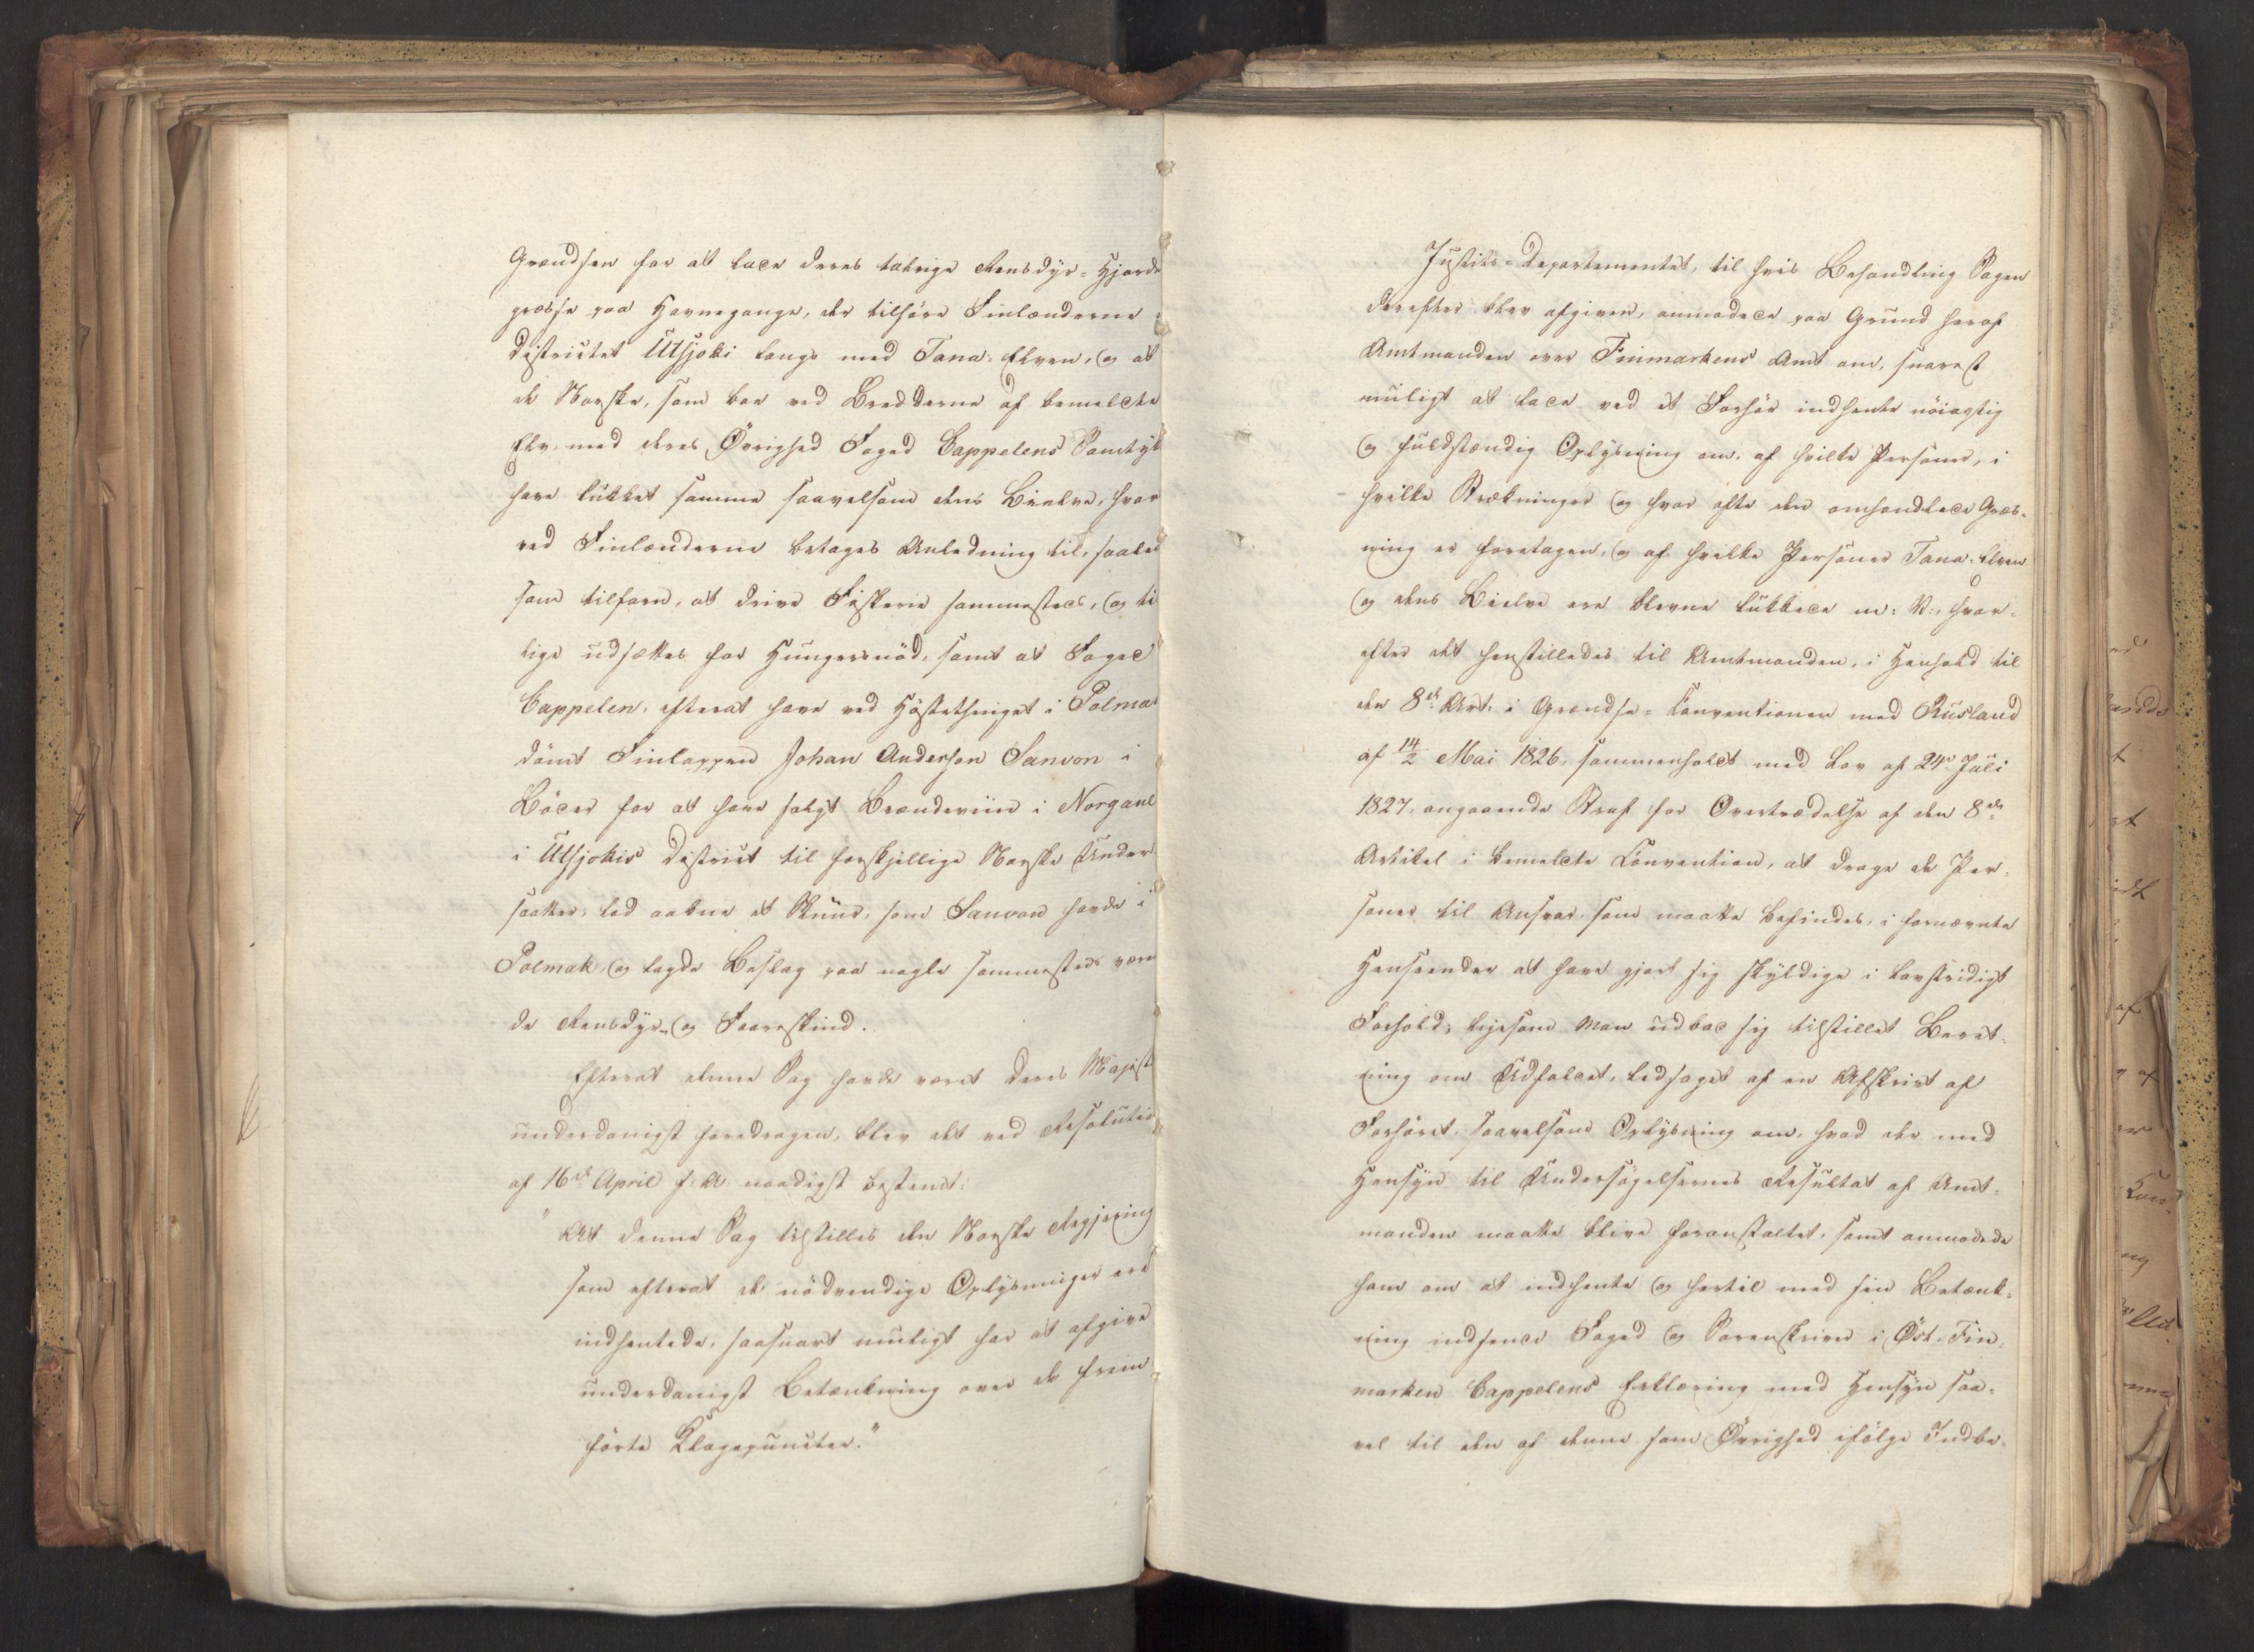 Grændsen for at lade deres talrige Rensdyr-Hjorde
græsse paa Havnegange, der tilhöre Finlænderne i
Districtet Utsjoki langs med Tana-Elven, og at
de Norske, som boe ved Bredderne af bemeldte
Elv, med deres Øvrighed Foged Cappelens Samtyk
have lukket samme saavelsom dens Bielve, hvor
ved Finlænderne betages Anledning til, saale
som tilforn, at drive Fiskerie sammesteds, og ti
lige udsættes for Hungersnöd, samt at Foged
Cappelen, efterat have ved Höstethinget i Polma
dömt Finlappen Johan Anderson Sanvon i
Böder for at have solgt Brændeviin i Norgane
i Utsjokis District til forskjellige Norske Under
saatter, lod aabne et Skuur, som Sanvon havde i
Polmak, og lagde Beslag paa nogle sammesteds være
de Rensdyr- og Faareskind.
Efterat denne Sag havde været Deres Majest
underdanigst foredragen, blev det ved Resolutio
af 16de April f: A: naadigst bestemt:
"At denne Sag tilstilles den Norske Regjering
som efterat de nödvendige Oplysninger ere
indhentede, saasnart muligt har at afgive
underdanigst Betænkning over de frem-
förte Klagepuncter."
Justits-Departementet, til hvis Behandling Sagen
derefter blev afgiven, anmodede paa Grund heraf
Amtmanden over Finmarkens Amt om, snarest
muligt at lade ved et Forhör indhente nöiagtig
og fuldstændig Oplysning om, af hvilke Personer, i
hvilke Strækninger og hvor ofte den omhandlede Græs-
ning er foretagen, og af hvilke Personer Tana-Elven
og dens Bielve ere blevne lukkede m: V:, hvor-
efter det henstilledes til Amtmanden, i Henhold til
den 8de Art. i Grændse-Conventionen med Rusland
af 14/2 Mai 1826, sammenholdt med Lov af 24de Juli
1827, angaaende Straf for Overtrædelse af den 8de
Artikel i bemeldte Convention, at drage de Per-
soner til Ansvar, som maatte befindes, i fornævnte
Henseender at have gjort sig skyldige i lovstridigt
Forhold, ligesom man udbad sig tilstillet Beret-
ning om Udfaldet, ledsaget af en Afskrivt af
Forhöret, saavelsom Oplysning om, hvad der med
Hensyn til Undersögelsernes Resultat af Amt-
manden maatte blive foranstaltet, samt anmodede
ham om at indhente og hertil med sin Betænk-
ning indsende Foged og Sorenskriver i Øst-Fin-
marken Cappelens Erklæring med Hensyn saa-
vel til den af denne som Øvrighed ifölge Indbe-